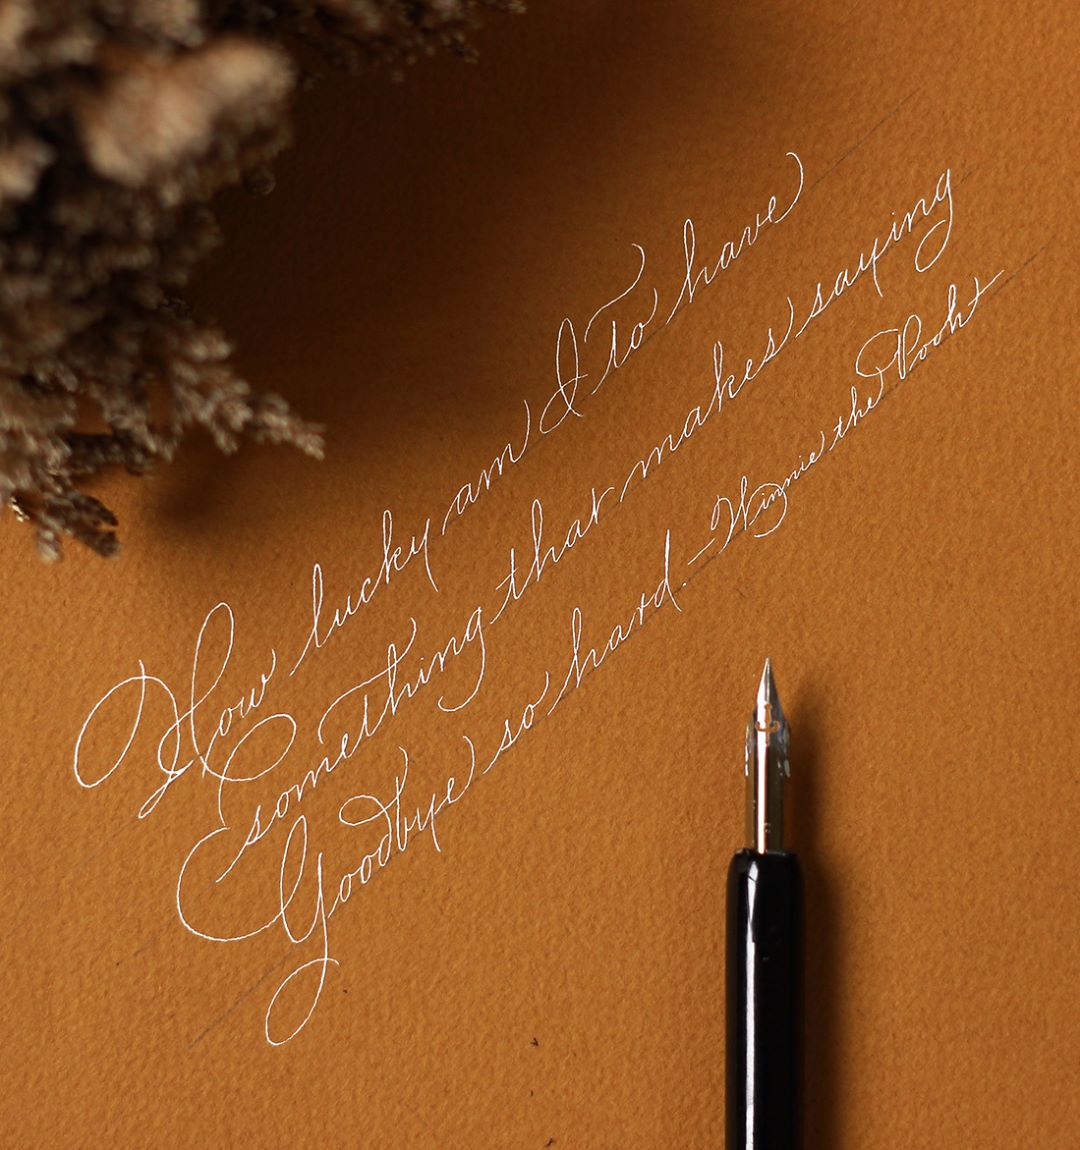 How lucky am I To have
something that makes saying
Goodbye so hard. – Winnie the Pooh